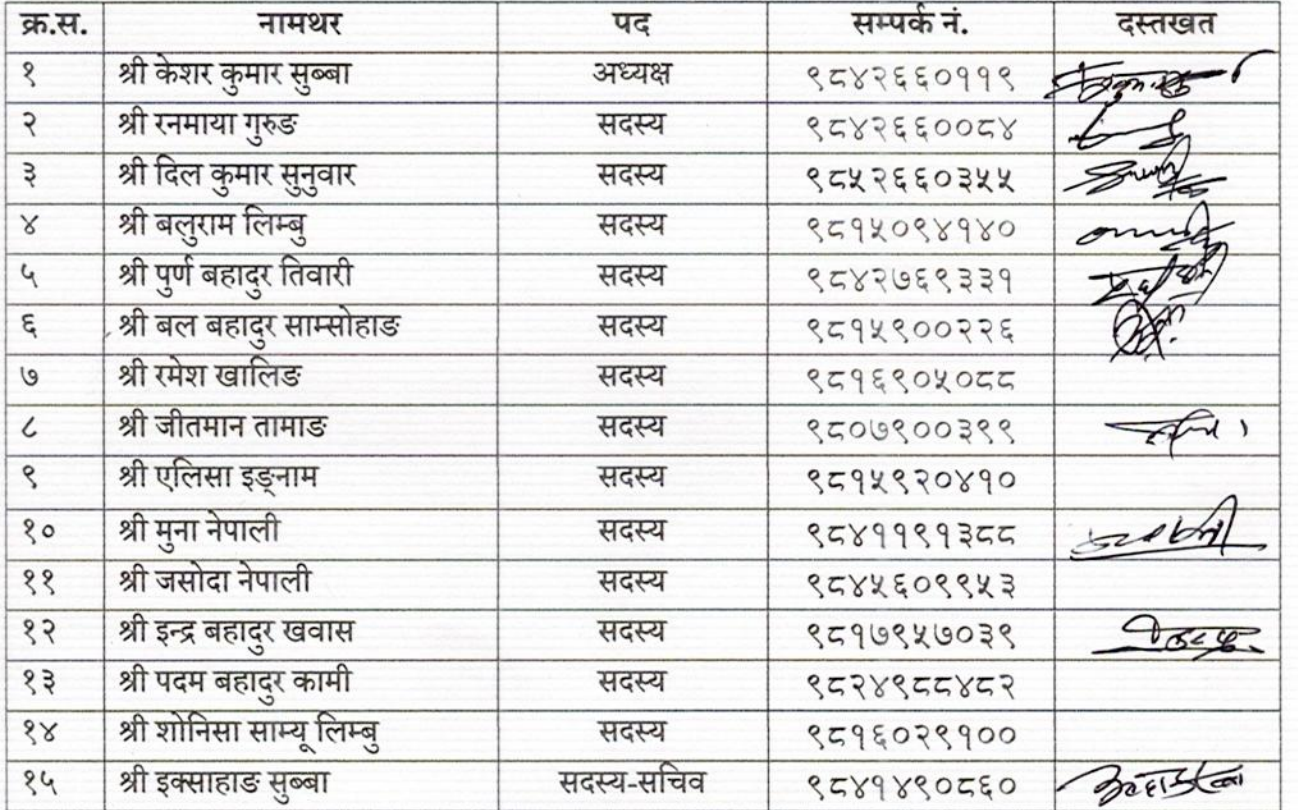 क्र.स. नामथर पद सम्पर्क नं. दस्तखत
१ श्री केशर कुमार सुब्बा अध्यक्ष ९८४२६६०११९
२ श्री रनमाया गुरुङ सदस्य ९८४२६६००८४
३ श्री दिल कुमार सुनुवार सदस्य ९८५२६६०३५५
४ श्री बलुराम लिम्बु सदस्य ९८१५०९४१४०
५ श्री पुर्ण बहादुर तिवारी सदस्य ९८४२७६९३३१
६ श्री बल बहादुर साम्सोहाङ सदस्य ९८१५९००२२६
७ श्री रमेश खालिङ सदस्य ९८१६९०५०८८
८ श्री जीतमान तामाङ सदस्य ९८०७९००३९९
९ श्री एलिसा इङ्नाम सदस्य ९८१५९२०४१०
१० श्री मुना नेपाली सदस्य ९८४११९१३८८
११ श्री जसोदा नेपाली सदस्य ९८४५६०९९५३
१२ श्री इन्द्र बहादुर खवास सदस्य ९८१७९५७०३९
१३ श्री पदम बहादुर कामी सदस्य ९८२४९८८४८२
१४ श्री शोनिसा साम्यू लिम्बु सदस्य ९८१६०२९१००
१५ श्री इक्साहाङ सुब्बा सदस्य-सचिव ९८४१४९०८६०